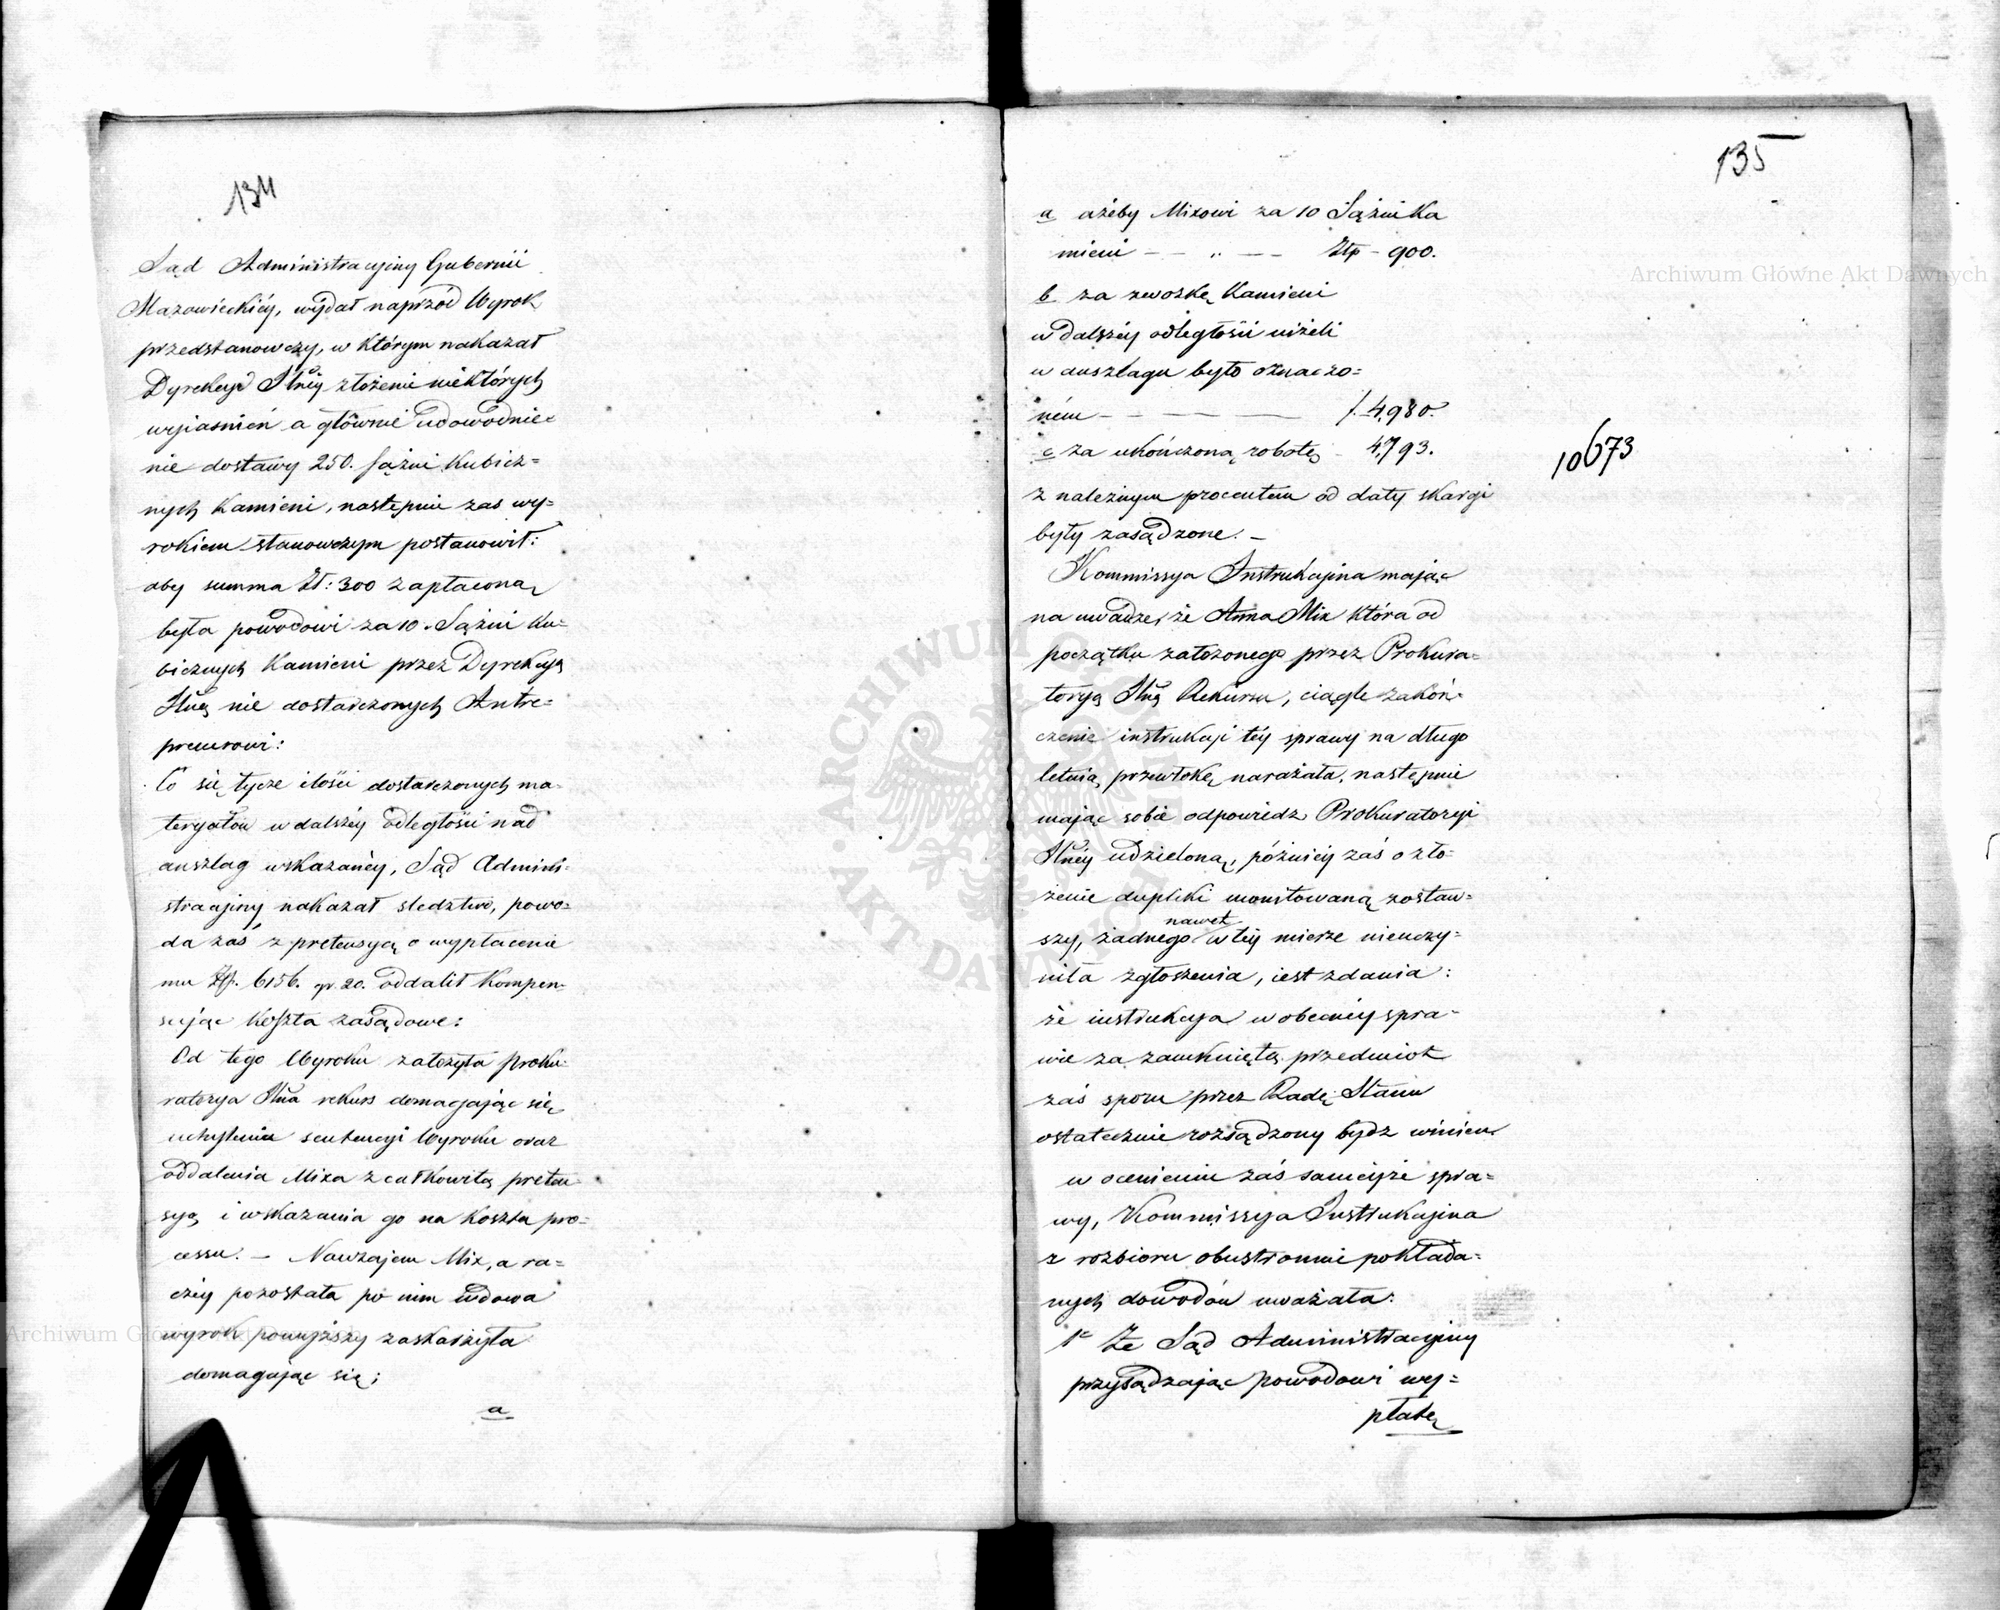 134
Sąd Administracyiny Gubernii
Mazowieckiéy, wydał naprzód Wyrok
przedstanowczy, w którym nakazał
Dyrekcyi Jlnéy złożenie niektórych
wyiasnień a głównie udowodnie=
nie dostawy 250. sążni kubicz=
nych Kamieni, następnie zas wy=
rokiem stanowczym postanowił:
aby summa Zł: 300 zapłaconą
była powodowi za 10. Sążni ku=
bicznych Kamieni przez Dyrekcyą
Jlną nie dostarczonych Antre=
preurowi:
Co się tycze ilości dostarczonych ma=
teryałów w dalszéy odległości nad
anszlag wskazanéy, Sąd Admini=
stracyiny nakazał sledztwo, powo=
da zaś z pretensyą o wypłacenie
mu Złp. 6156. gr. 20. oddalił kompen=
sując koszta zasądowe:
Od tego Wyroku założyła Proku=
ratorya Jlna rekurs domagając się
uchylenia sentencyi Wyroku oraz
oddalenia Mixa z całkowitą preten=
syą i wskazania go na koszta pro=
cessu. – Nawzajem Mix, a ra=
czéy pozostała po nim wdowa
wyrok powyższy zaskarżyła
domagając się;
a
135
a ażeby Mixowi za 10 Sążni Ka
mieni – – „ – – Złp – 900.
b za zwózkę Kamieni
w dalszéy odległości niżeli
w anszlagu było oznaczo=
ném – – – – f. 4,980.
c za ukończoną robotę – 4,793.
10673
z należnym procentem od daty skargi
były zasądzone. –
Kommissya Instrukcyina mając
na uwadze, że Anna Mix która od
początku założonego przez Prokura=
toryą Jlną Rekursu, ciągle zakoń=
czenie instrukcyi téy sprawy na długo
letnią przewłokę narażała, następnie
mając sobie odpowiedz Prokuratoryi
Jlnéy udzieloną, późniéy zaś o zło=
żenie dupliki monitowaną zostaw=
nawet
szy, żadnego w téy mierze nieuczy=
niła zgłoszenia, iest zdania:
że instrukcya w obecnéy spra=
wie za zamkniętą przedmiot
zaś sporu przez Radę Stanu
ostatecznie rozsądzony bydz winien.
w ocenieniu zaś saméyże spra=
wy, Kommissya Instrukcyina
z rozbioru obustronnie pokłada=
nych dowodów uważała:
1e Że Sąd Administracyiny
przysądzając powodowi wy=
płatę
Archiwum Główne Akt Dawnych
ARCHIWUM GŁÓWNE AKT DAWNYCH
Archiwum Główne Akt Dawnych